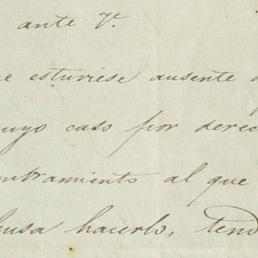 ante V.
e estuviese ausente
uyo caso por derec
mbramiento al que
usa hacerlo, tend